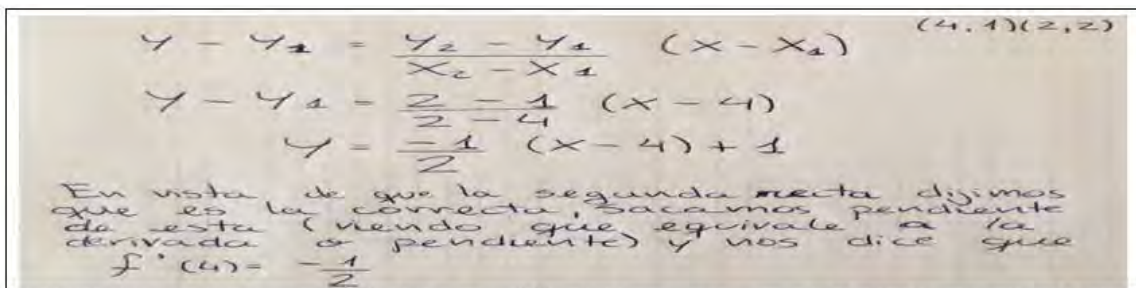 (4,1)(2,2)
y - y₁ = \frac{y₂ - y₁}{x₂ - x₁} (x - x₁)
y - y₁ = \frac{2 - 1}{2 - 4} (x - 4)
y = \frac{-1}{2} (x - 4) + 1
En vista de que la segunda recta dijimos
que es la correcta, sacamos pendiente
de esta (viendo que equivale a la
derivada o pendiente) y nos dice que
f'(4) = -\frac{1}{2}